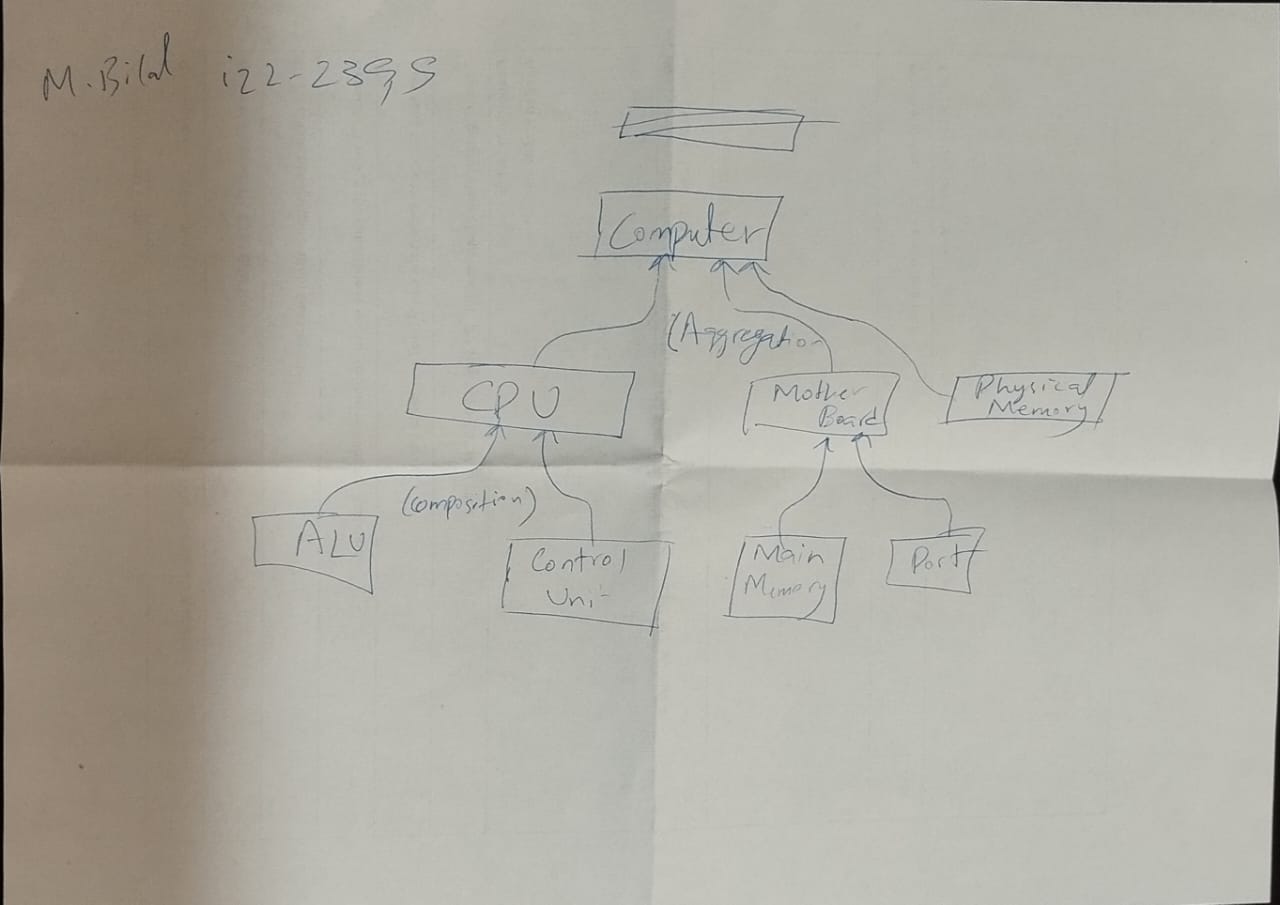 M. Bilal i22-2399
Computer
(Aggregation
CPU
Mother
Board
Physical
Memory
(composition)
ALU
Control
Uni
Main
Memory
Port